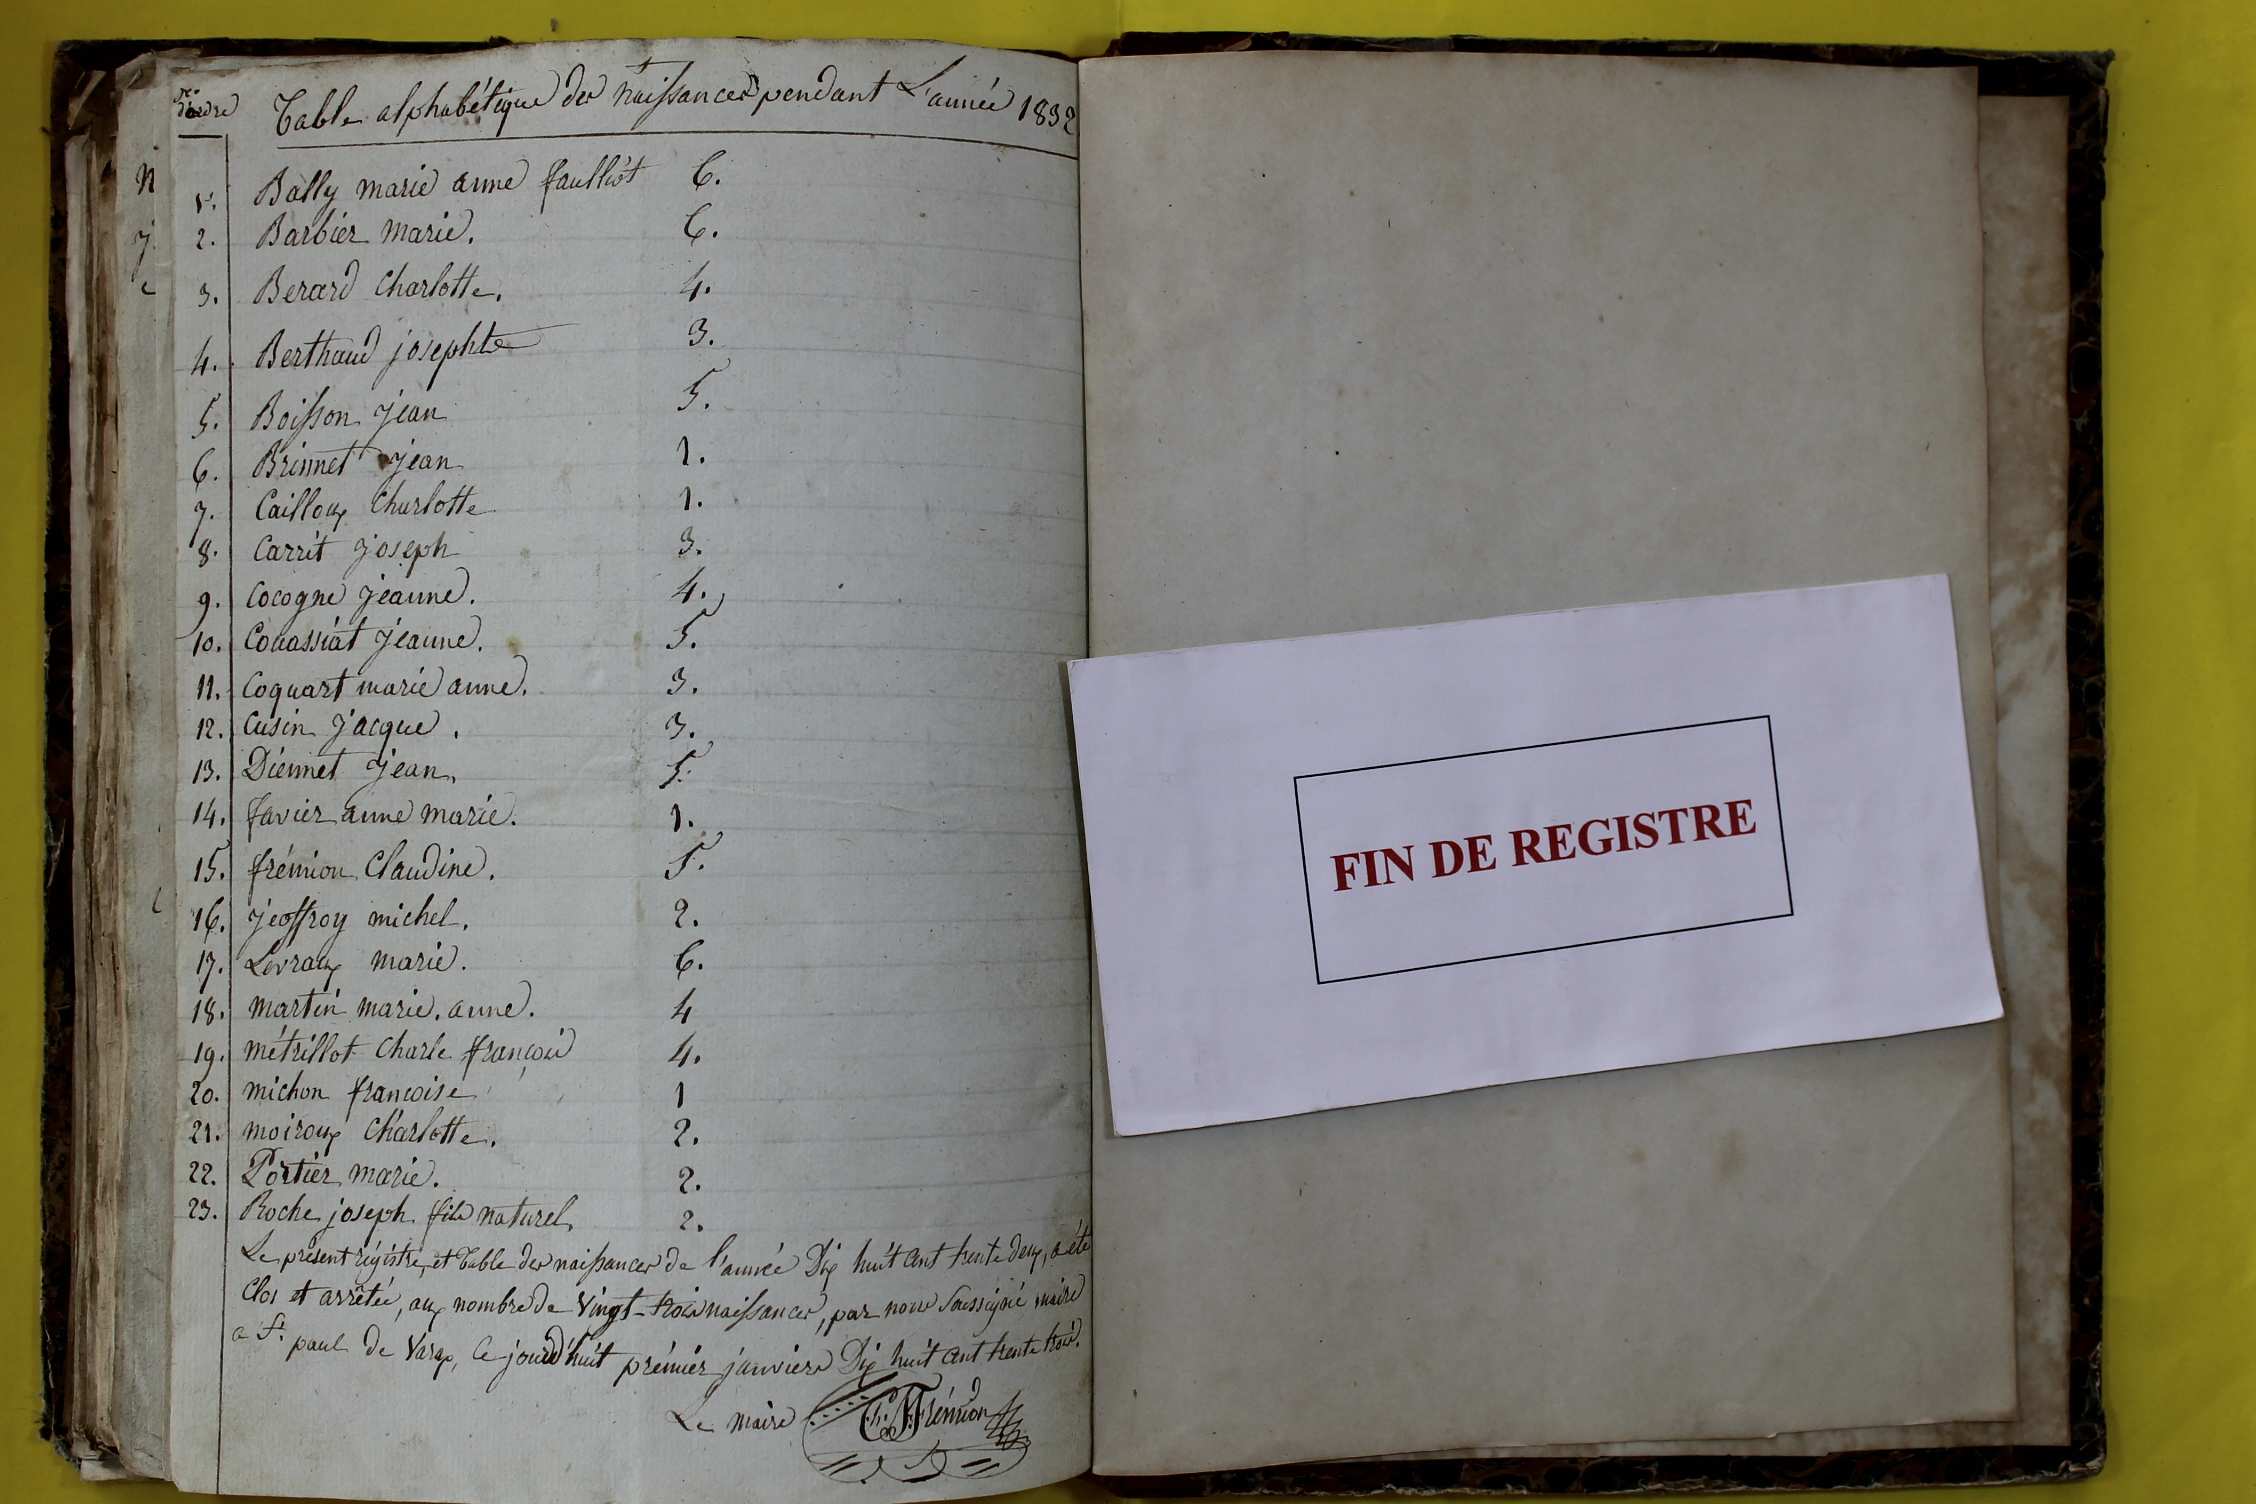 Nos d'ordre
Table alphabétique des naissances pendant L'année 1832
n
j
c
1. Bally marie anne 6.
2. Barbier marie. 6.
3. Berard Charlotte. 4.
4. Berthaud josephte 3.
5. Boisson jean 5.
6. Brinnet jean 1.
7. Cailloux Charlotte 1.
8. Carrit joseph 3.
9. Cocogne jeanne. 4.
10. Couassiat jeanne. 5.
11. Coquart marie anne. 3.
12. Cusin jacque. 3.
13. Diennet jean, 5.
14. favier anne marie. 1.
15. frémion Claudine. 5.
16. jeoffroy michel. 2.
17. Levraux marie. 6.
18. martin marie. anne. 4
19. métrillot charle françois 4.
20. michon françoise 1
21. moiroux Charlotte. 2.
22. Portier marie. 2.
23. Roche joseph fils naturel. 2.
Le présent régistre, et Table des naissances de l'année Dix huit cent trente deux, a été
Clos et arrêtée, aux nombre de Vingt-trois naissances, par nous Soussigné maire
a St. paul de Varax, ce jourd'huit prémier janvier Dix huit cent trente trois.
Le maire Ch. Frémion
FIN DE REGISTRE